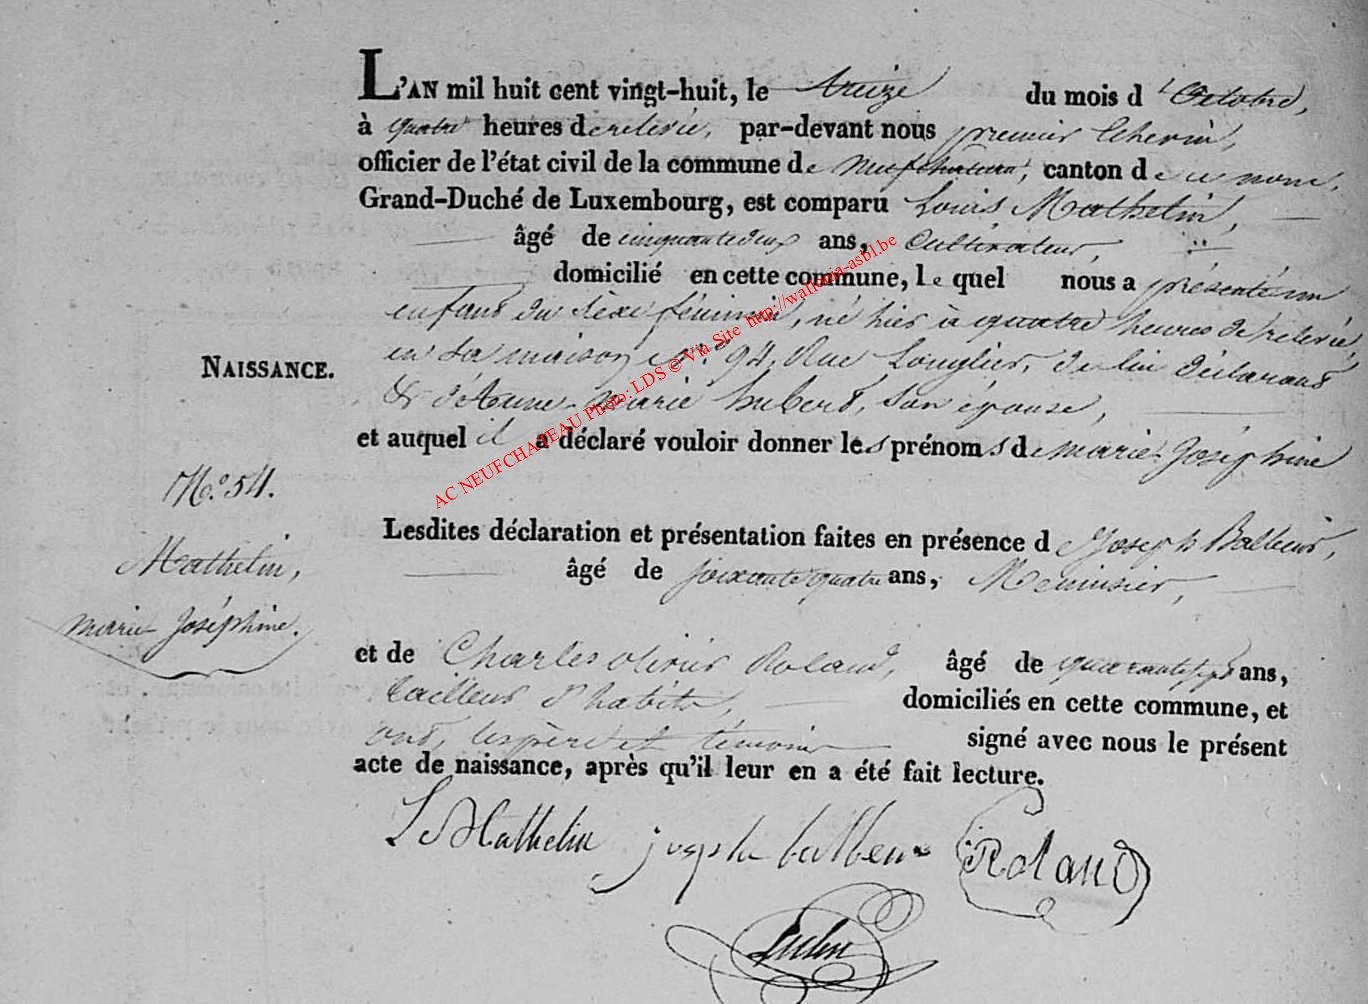 L'AN mil huit cent vingt-huit, le treize du mois d'Octobre,
à quatre heures de relevée, par-devant nous premier Echevin,
officier de l'état civil de la commune de Neufchateau, canton de ce nom,
Grand-Duché de Luxembourg, est comparu Louis Mathelin,
âgé de cinquante deux ans, Cultivateur,
domicilié en cette commune, lequel nous a présenté un
enfant du sèxe féminin, né hier à quatre heures de relevée,
en sa maison N.º 94, Rue Longlier, de lui déclarant
& d'Anne-Marie hubert, son épouse,
NAISSANCE.
et auquel il a déclaré vouloir donner les prénoms de marie-Joséphine
N.º 54.
Mathelin,
marie Joséphine.
Lesdites déclaration et présentation faites en présence de Joseph Balleur,
âgé de soixante quatre ans, Menuisier,
et de Charles olivier Roland, âgé de quarante sept ans,
tailleur d'habits, domiciliés en cette commune, et
ont, les père et témoins signé avec nous le présent
acte de naissance, après qu'il leur en a été fait lecture.
L Mathelin joseph balleur Roland
AC NEUFCHATEAU Photo: LDS © Via Site http://wallonia-asbl.be